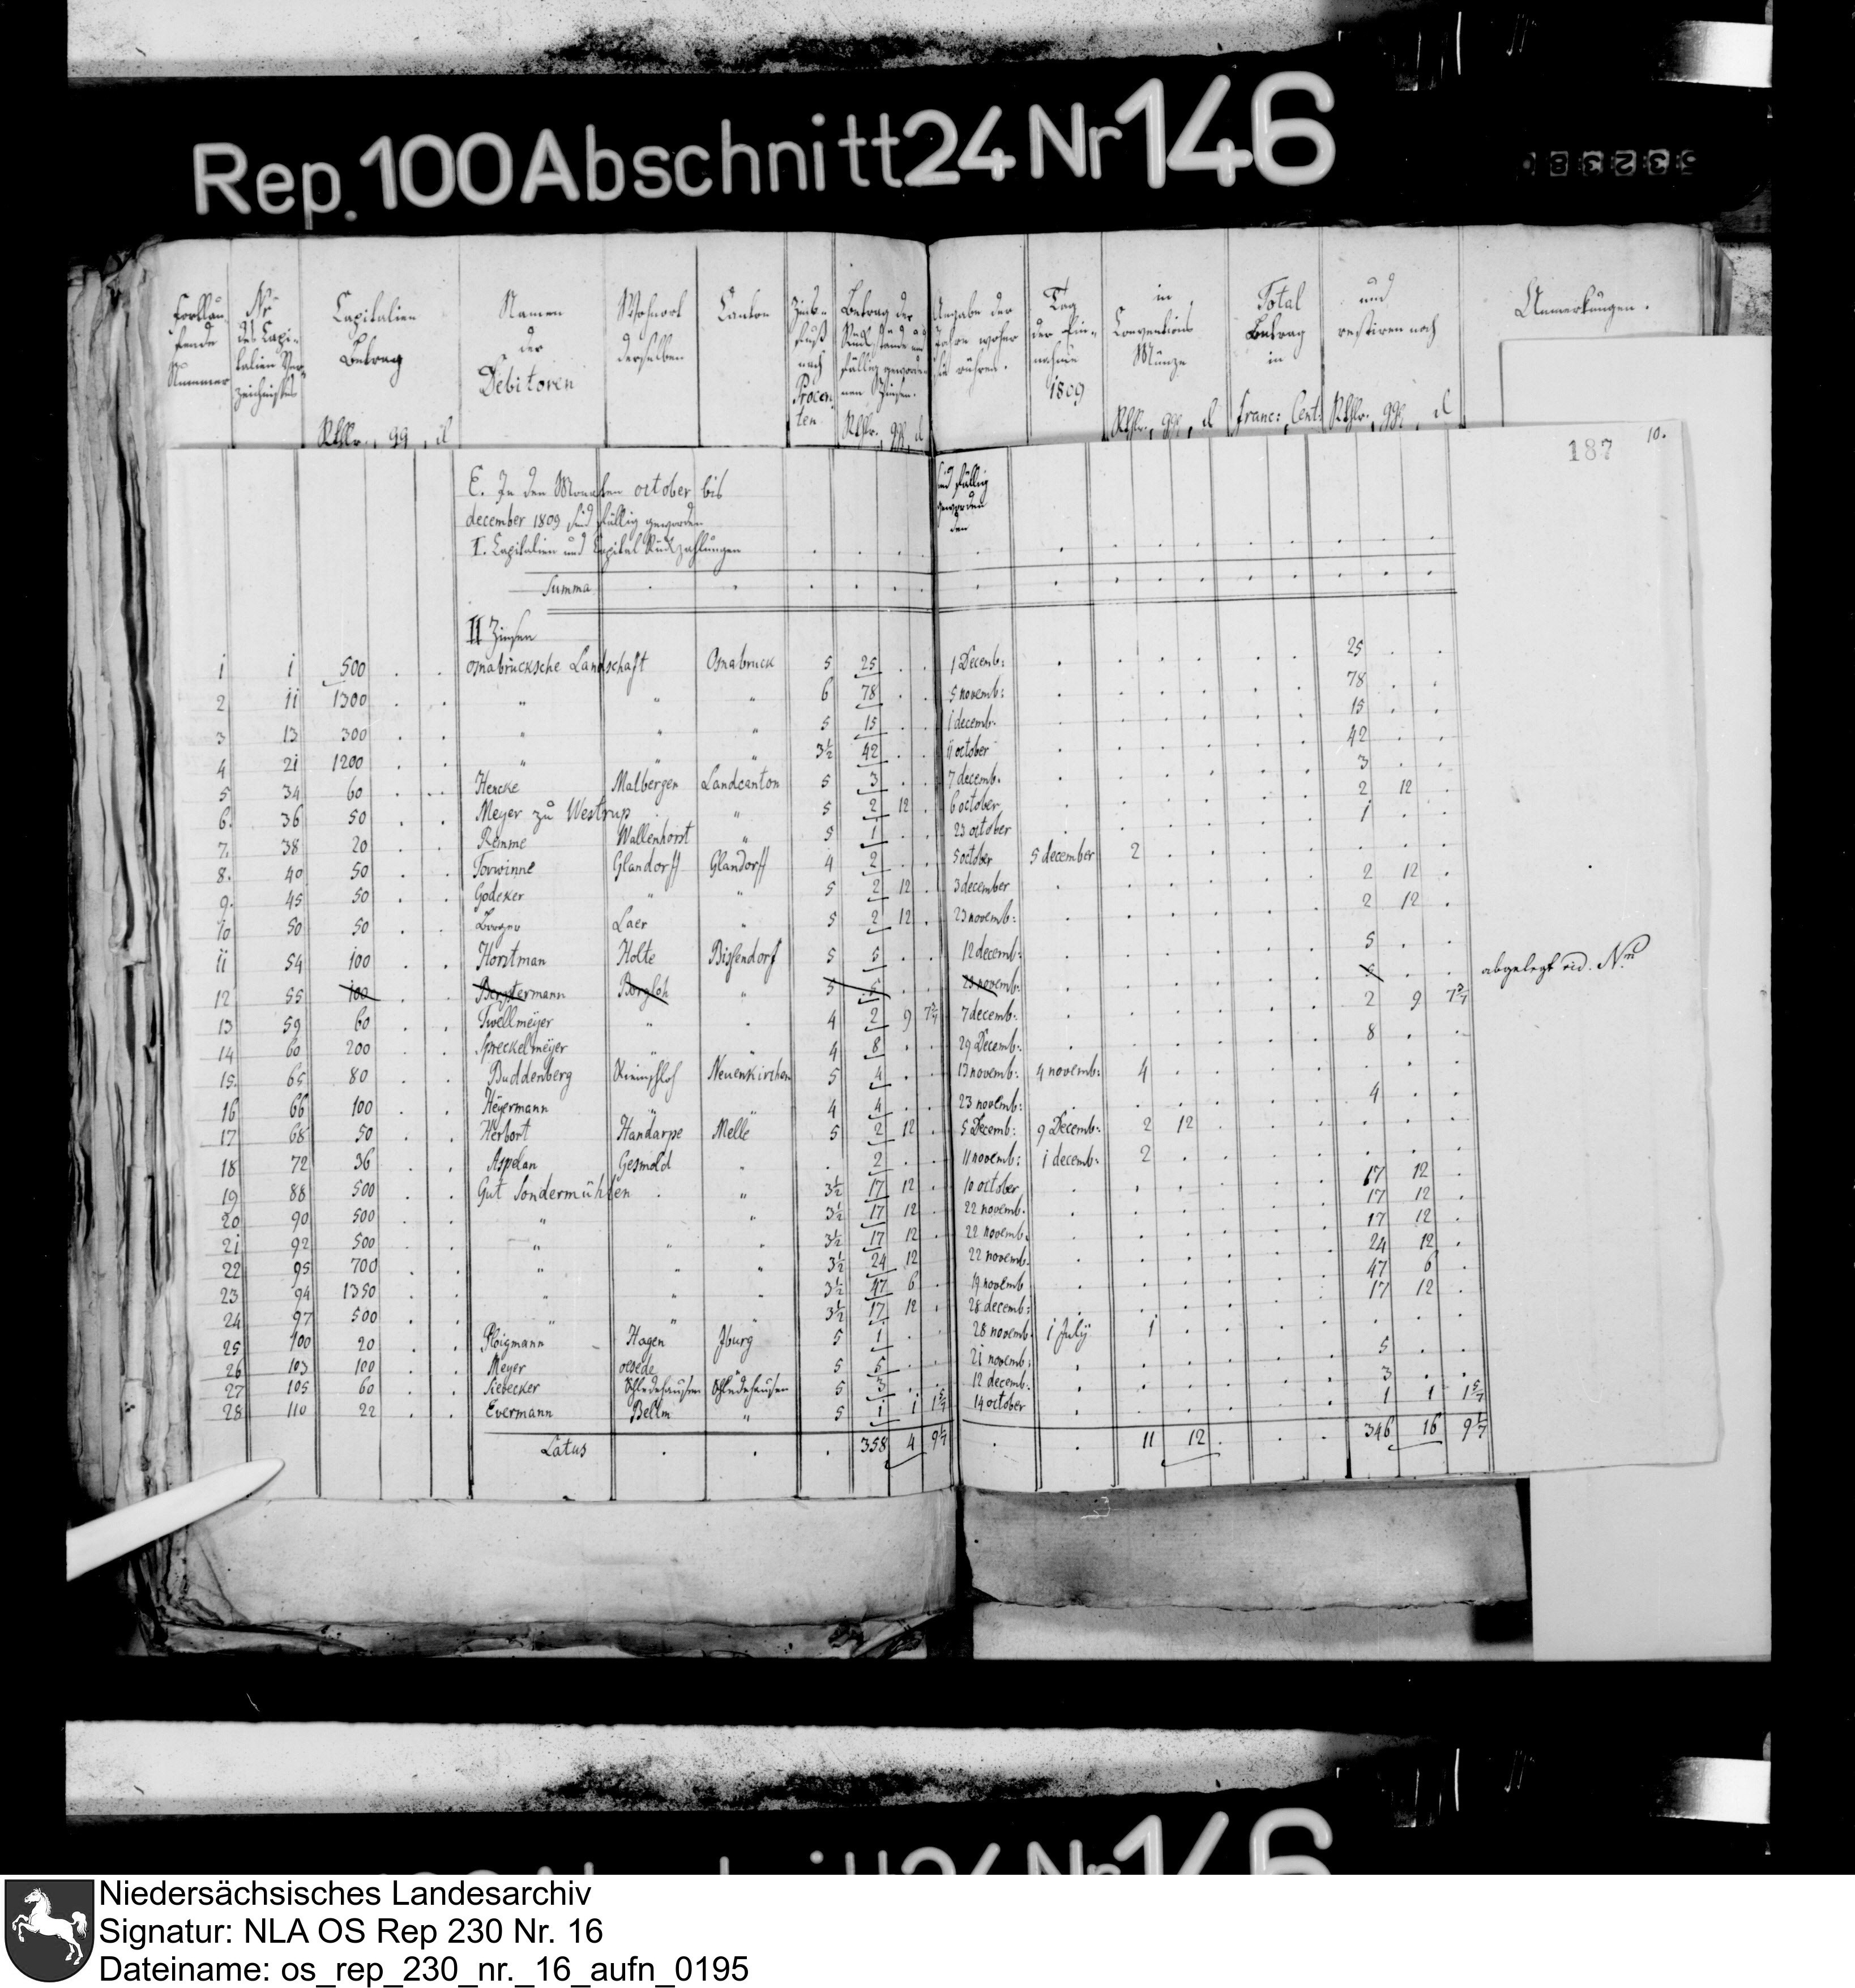 Rep. 100 Abschnitt 24 Nr 146
Fortlaufende Nummer
Nr des Capitalien Verzeichnisses
Capitalien Betrag
Rthlr. gg. d
Namen der Debitoren
Wohnort derselben
Canton
Zinsfuß nach Procenten
Betrag der Rückstände und fällig gewordenen Zinsen.
Rthlr. ggr d
Angabe der Jahre woher sie rühren.
Tag der Einnahme 1809
in Conventions Münze
Rthlr. ggr. d
Total Betrag in
Franc: Cent:
und restiren noch
Rthlr. ggr. d
Anmerkungen.
187
10.
E. In den Monathen october bis
december 1809 sind fällig geworden
I. Capitalien und Capital Rückzahlungen
sind fällig geworden den
Summa
II Zinsen
1 1 500 . . Osnabrücksche Landschaft Osnabruck 5 25 . . 1 Decemb: 25 . .
2 11 1300 . . " " " 6 78 . . 5 novemb: 78 . .
3 13 300 . . " " " 5 15 . . 1 decemb. 15 . .
4 21 1200 . . " " " 3½ 42 . . 11 october 42 . .
5 34 60 . . Hencke Malbergen Landcanton 5 3 . . 7 decemb. 3 . .
6. 36 50 . . Meyer zu Westrup . " 5 2 12 . 6 october 2 12 .
7. 38 20 . . Remme Wallenhorst " 5 1 . . 23 october 1 . .
8. 40 50 . . Torwinne Glandorff Glandorff 4 2 . . 5 october 5 december 2 . .
9. 45 50 . . Godeker " " 5 2 12 . 3 december 2 12 .
10 50 50 . . Laer " 5 2 12 . 23 novemb: 2 12 .
11 54 100 . . Horstman Holte Bissendorf 5 5 . . 12 decemb: 5 . .
12 55 100 . . Bergstermann Borgloh " 5 5 . . 23 novemb: 5 . . abgelegt vid. Nru
13 59 60 . . Twellmeyer " . 4 2 9 7 2/7 7 decemb: 2 9 7 2/7
14 60 200 . . Spreckelmeyer " " 4 8 . . 29 Decemb: 8 . .
15. 65 80 . . Buddenberg Neuenkirchen 5 4 . . 13 novemb: 4 novemb: 4 . .
16 66 100 . . Heyermann " " 4 4 . . 23 novemb: 4 . .
17 68 50 . . Herbort Handarpe Melle 5 2 12 . 5 Decemb: 9 Decemb: 2 12 .
18 72 36 . . Aspelan Gesmold " . 2 . . 11 novemb: 1 decemb: 2 . .
19 88 500 . . Gut Sondermühlen . " 3½ 17 12 . 10 october 17 12 .
20 90 500 . . " " " 3½ 17 12 . 22 novemb. 17 12 .
21 92 500 . . " " " 3½ 17 12 . 22 novemb. 17 12 .
22 95 700 . . " " " 3½ 24 12 . 22 novemb. 24 12 .
23 94 1350 . . " " " 3½ 47 6 . 19 novemb 47 6 .
24 97 500 . . " " " 3½ 17 12 . 28 decemb: 17 12 .
25 100 20 . . Hagen Iburg 5 1 . . 28 novemb. 1 July 1 . .
26 103 100 . . Meyer oesede " 5 5 . . 21 novemb: 5 . .
27 105 60 . . Siebecker Schledehausen Schledehausen 5 3 . . 12 decemb. 3 . .
28 110 22 . . Evermann Bellm " 5 1 1 1 5/7 14 october 1 1 1 5/7
Latus . . . 358 4 9 1/7 . . 11 12 . . . 346 16 9 1/7
Niedersächsisches Landesarchiv
Signatur: NLA OS Rep 230 Nr. 16
Dateiname: os_rep_230_nr._16_aufn_0195